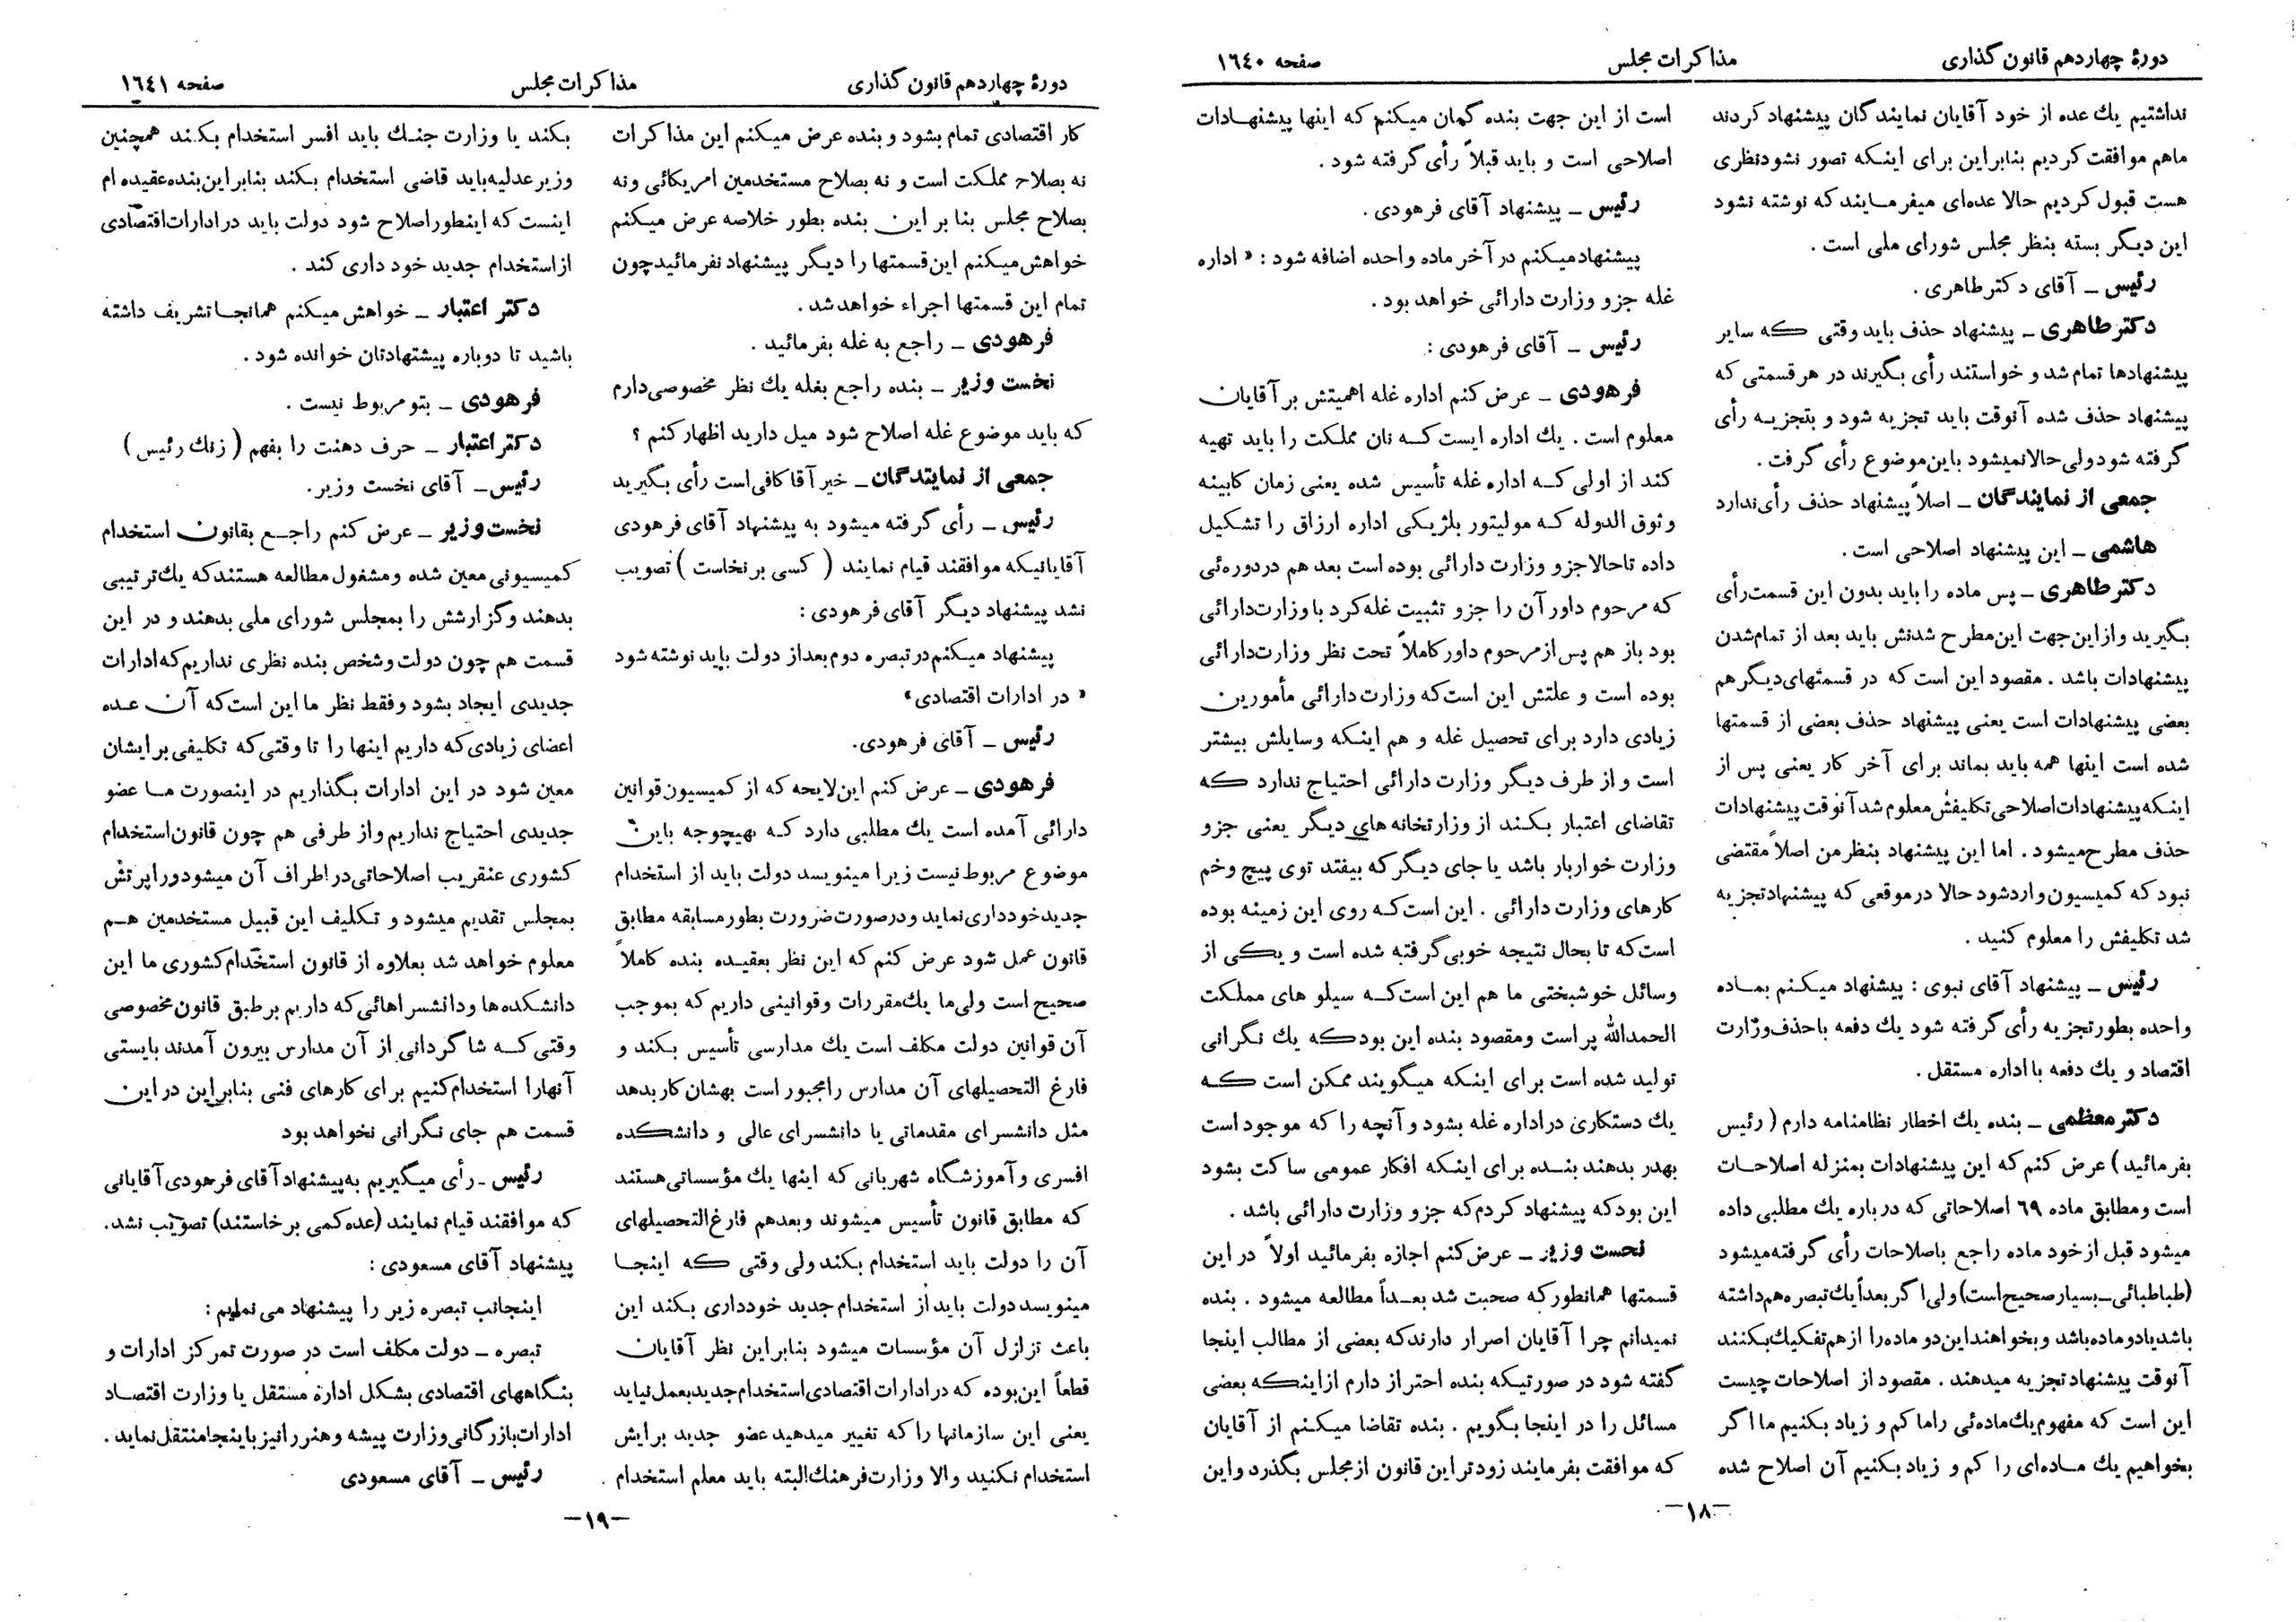 دورهٔ چهاردهم قانون گذاری
مذاکرات مجلس
صفحه ۱٦٤۰
نداشتیم یك عده از خود آقایان نمایندگان پیشنهاد کردند
ماهم موافقت کردیم بنابراین برای اینکه تصور نشود نظری
هست قبول کردیم حالا عده‌ای میفرمایند که نوشته نشود
این دیگر بسته بنظر مجلس شورای ملی است .
رئیس ــ آقای دکتر طاهری .
دکتر طاهری ــ پیشنهاد حذف باید وقتی که سایر
پیشنهادها تمام شد و خواستند رأی بگیرند در هر قسمتی که
پیشنهاد حذف شده آنوقت باید تجزیه شود و بتجزیه رأی
گرفته شود ولی حالا نمیشود باین موضوع رأی گرفت .
جمعی از نمایندگان ــ اصلاً پیشنهاد حذف رأی ندارد
هاشمی ــ این پیشنهاد اصلاحی است .
دکتر طاهری ــ پس ماده را باید بدون این قسمت رأی
بگیرید و از این جهت این مطرح شدنش باید بعد از تمام شدن
پیشنهادات باشد . مقصود این است که در قسمتهای دیگر هم
بعضی پیشنهادات است یعنی پیشنهاد حذف بعضی از قسمتها
شده است اینها همه باید بماند برای آخر کار یعنی پس از
اینکه پیشنهادات اصلاحی تکلیفش معلوم شد آنوقت پیشنهادات
حذف مطرح میشود . اما این پیشنهاد بنظر من اصلاً مقتضی
نبود که کمیسیون وارد شود حالا در موقعی که پیشنهاد تجزیه
شد تکلیفش را معلوم کنید .
رئیس ــ پیشنهاد آقای نبوی : پیشنهاد میکنم بماده
واحده بطور تجزیه رأی گرفته شود یك دفعه با حذف وزارت
اقتصاد و یك دفعه با اداره مستقل .
دکتر معظمی ــ بنده یك اخطار نظامنامه دارم ( رئیس
بفرمائید ) عرض کنم که این پیشنهادات بمنزله اصلاحات
است و مطابق ماده ٦٩ اصلاحاتی که درباره یك مطلبی داده
میشود قبل از خود ماده راجع باصلاحات رأی گرفته میشود
(طباطبائی ــ بسیار صحیح است) ولی اگر بعداً یك تبصره هم داشته
باشد یا دو ماده باشد و بخواهند این دو ماده را از هم تفکیك بکنند
آنوقت پیشنهاد تجزیه میدهند . مقصود از اصلاحات چیست
این است که مفهوم یك ماده‌ئی را ما کم و زیاد بکنیم ما اگر
بخواهیم یك ماده‌ای را کم و زیاد بکنیم آن اصلاح شده
است از این جهت بنده گمان میکنم که اینها پیشنهادات
اصلاحی است و باید قبلاً رأی گرفته شود .
رئیس ــ پیشنهاد آقای فرهودی .
پیشنهاد میکنم در آخر ماده واحده اضافه شود : « اداره
غله جزو وزارت دارائی خواهد بود .
رئیس ــ آقای فرهودی :
فرهودی ــ عرض کنم اداره غله اهمیتش بر آقایان
معلوم است . یك اداره ایست که نان مملکت را باید تهیه
کند از اولی که اداره غله تأسیس شده یعنی زمان کابینه
وثوق الدوله که مولیتور بلژیکی اداره ارزاق را تشکیل
داده تا حالا جزو وزارت دارائی بوده است بعد هم در دوره‌ئی
که مرحوم داور آن را جزو تثبیت غله کرد با وزارت دارائی
بود باز هم پس از مرحوم داور کاملاً تحت نظر وزارت دارائی
بوده است و علتش این است که وزارت دارائی مأمورین
زیادی دارد برای تحصیل غله و هم اینکه وسایلش بیشتر
است و از طرف دیگر وزارت دارائی احتیاج ندارد که
تقاضای اعتبار بکند از وزارتخانه های دیگر یعنی جزو
وزارت خواربار باشد یا جای دیگر که بیفتد توی پیچ و خم
کارهای وزارت دارائی . این است که روی این زمینه بوده
است که تا بحال نتیجه خوبی گرفته شده است و یکی از
وسائل خوشبختی ما هم این است که سیلو های مملکت
الحمدالله پر است و مقصود بنده این بود که یك نگرانی
تولید شده است برای اینکه میگویند ممکن است که
یك دستکاری در اداره غله بشود و آنچه را که موجود است
بهدر بدهند بنده برای اینکه افکار عمومی ساکت بشود
این بود که پیشنهاد کردم که جزو وزارت دارائی باشد .
نخست وزیر ــ عرض کنم اجازه بفرمائید اولاً در این
قسمتها همانطور که صحبت شد بعداً مطالعه میشود . بنده
نمیدانم چرا آقایان اصرار دارند که بعضی از مطالب اینجا
گفته شود در صورتیکه بنده احتراز دارم از اینکه بعضی
مسائل را در اینجا بگویم . بنده تقاضا میکنم از آقایان
که موافقت بفرمایند زودتر این قانون از مجلس بگذرد و این
ــ ۱۸ ــ
دورهٔ چهاردهم قانون گذاری
مذاکرات مجلس
صفحه ۱٦٤۱
کار اقتصادی تمام بشود و بنده عرض میکنم این مذاکرات
نه بصلاح مملکت است و نه بصلاح مستخدمین امریکائی و نه
بصلاح مجلس بنا بر این بنده بطور خلاصه عرض میکنم
خواهش میکنم این قسمتها را دیگر پیشنهاد نفرمائید چون
تمام این قسمتها اجراء خواهد شد .
فرهودی ــ راجع به غله بفرمائید .
نخست وزیر ــ بنده راجع بغله یك نظر مخصوصی دارم
که باید موضوع غله اصلاح شود میل دارید اظهار کنم ؟
جمعی از نمایندگان ــ خیر آقا کافی است رأی بگیرید
رئیس ــ رأی گرفته میشود به پیشنهاد آقای فرهودی
آقایانیکه موافقند قیام نمایند ( کسی برنخاست ) تصویب
نشد پیشنهاد دیگر آقای فرهودی :
پیشنهاد میکنم در تبصره دوم بعد از دولت باید نوشته شود
« در ادارات اقتصادی»
رئیس ــ آقای فرهودی.
فرهودی ــ عرض کنم این لایحه که از کمیسیون قوانین
دارائی آمده است یك مطلبی دارد که بهیچوجه باین
موضوع مربوط نیست زیرا مینویسد دولت باید از استخدام
جدید خودداری نماید و در صورت ضرورت بطور مسابقه مطابق
قانون عمل شود عرض کنم که این نظر بعقیده بنده کاملاً
صحیح است ولی ما یك مقررات و قوانینی داریم که بموجب
آن قوانین دولت مکلف است یك مدارسی تأسیس بکند و
فارغ التحصیلهای آن مدارس را مجبور است بهشان کار بدهد
مثل دانشسرای مقدماتی یا دانشسرای عالی و دانشکده
افسری و آموزشگاه شهربانی که اینها یك مؤسساتی هستند
که مطابق قانون تأسیس میشوند و بعد هم فارغ التحصیلهای
آن را دولت باید استخدام بکند ولی وقتی که اینجا
مینویسد دولت باید از استخدام جدید خودداری بکند این
باعث تزلزل آن مؤسسات میشود بنابراین نظر آقایان
قطعاً این بوده که در ادارات اقتصادی استخدام جدید بعمل نیاید
یعنی این سازمانها را که تغییر میدهید عضو جدید برایش
استخدام نکنید والا وزارت فرهنك البته باید معلم استخدام
بکند یا وزارت جنك باید افسر استخدام بکند همچنین
وزیر عدلیه باید قاضی استخدام بکند بنابراین بنده عقیده ام
اینست که اینطور اصلاح شود دولت باید در ادارات اقتصادی
از استخدام جدید خود داری کند .
دکتر اعتبار ــ خواهش میکنم همانجا تشریف داشته
باشید تا دوباره پیشنهادتان خوانده شود .
فرهودی ــ بتو مربوط نیست .
دکتر اعتبار ــ حرف دهنت را بفهم ( زنك رئیس )
رئیس ــ آقای نخست وزیر.
نخست وزیر ــ عرض کنم راجع بقانون استخدام
کمیسیونی معین شده و مشغول مطالعه هستند که یك ترتیبی
بدهند و گزارشش را بمجلس شورای ملی بدهند و در این
قسمت هم چون دولت و شخص بنده نظری نداریم که ادارات
جدیدی ایجاد بشود و فقط نظر ما این است که آن عده
اعضای زیادی که داریم اینها را تا وقتی که تکلیفی برایشان
معین شود در این ادارات بگذاریم در اینصورت ما عضو
جدیدی احتیاج نداریم و از طرفی هم چون قانون استخدام
کشوری عنقریب اصلاحاتی در اطراف آن میشود و راپرتش
بمجلس تقدیم میشود و تکلیف این قبیل مستخدمین هم
معلوم خواهد شد بعلاوه از قانون استخدام کشوری ما این
دانشکده ها و دانشسراهائی که داریم بر طبق قانون مخصوصی
وقتی که شاگردانی از آن مدارس بیرون آمدند بایستی
آنها را استخدام کنیم برای کارهای فنی بنابراین در این
قسمت هم جای نگرانی نخواهد بود
رئیس ــ رأی میگیریم به پیشنهاد آقای فرهودی آقایانی
که موافقند قیام نمایند (عده کمی برخاستند) تصویب نشد.
پیشنهاد آقای مسعودی :
اینجانب تبصره زیر را پیشنهاد می نمایم :
تبصره ــ دولت مکلف است در صورت تمرکز ادارات و
بنگاههای اقتصادی بشکل اداره مستقل یا وزارت اقتصاد
ادارات بازرگانی وزارت پیشه و هنر را نیز باینجا منتقل نماید .
رئیس ــ آقای مسعودی
ــ ۱۹ ــ